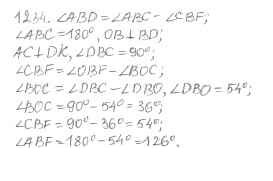 1234. ∠ABD = ∠ABC - ∠CBF;
∠ABC = 180°, OB ⊥ BD;
AC ⊥ DK, ∠DBC = 90°;
∠CBF = ∠OBF - ∠BOC;
∠BOC = ∠DBC - ∠DBO, ∠DBO = 54°;
∠BOC = 90° - 54° = 36°;
∠CBF = 90° - 36° = 54°;
∠ABF = 180° - 54° = 126°.